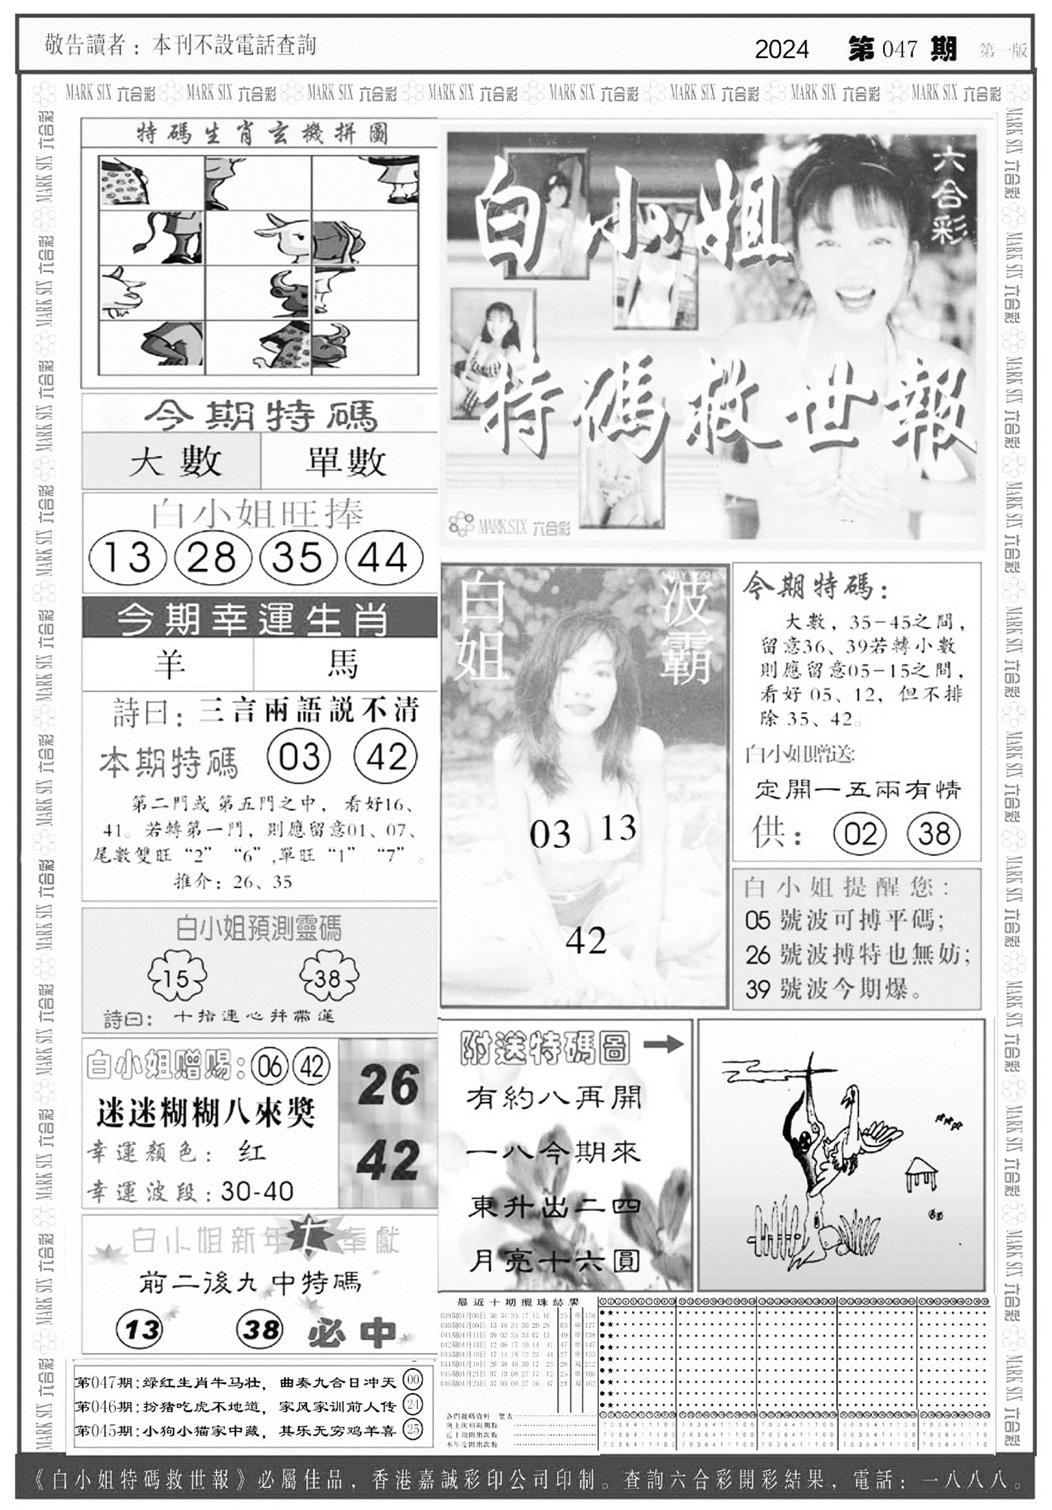 敬告讀者：本刊不設電話查詢
2024 第047期 第一版
MARK SIX 六合彩 MARK SIX 六合彩 MARK SIX 六合彩 MARK SIX 六合彩 MARK SIX 六合彩 MARK SIX 六合彩 MARK SIX 六合彩 MARK SIX 六合彩
特碼生肖玄機拼圖
今期特碼
大數 單數
白小姐旺捧
13 28 35 44
今期幸運生肖
羊 馬
詩曰：三言兩語説不清
本期特碼 03 42
第二門或第五門之中，看好16、
41。若轉第一門，則應留意01、07、
尾數雙旺“2”“6”,單旺“1”“7”。
推介：26、35
白小姐預測靈碼
15 38
詩曰：十指連心并帶蓮
白小姐赠赐：06 42
迷迷糊糊八來獎
幸運顏色：红
幸運波段：30-40
26
42
白小姐新年大奉獻
前二後九中特碼
13 38 必中
第047期:绿红生肖牛马壮，曲奏九合日冲天 00
第046期:扮猪吃虎不地道，家风家训前人传 24
第045期:小狗小猫家中藏，其乐无穷鸡羊喜 25
白小姐
六合彩
特碼救世報
MARK SIX 六合彩
白姐
波霸
03 13
42
今期特碼：
大數，35-45之間，
留意36、39若轉小數
則應留意05-15之間，
看好 05、12，但不排
除 35、42。
白小姐贈送:
定開一五兩有情
供：02 38
白小姐提醒您：
05 號波可搏平碼；
26 號波搏特也無妨；
39 號波今期爆。
附送特碼圖
有約八再開
一八今期來
東升出二四
月亮十六圓
最近十期攪珠結果
《白小姐特碼救世報》必屬佳品，香港嘉誠彩印公司印制。查詢六合彩開彩結果，電話：一八八八。